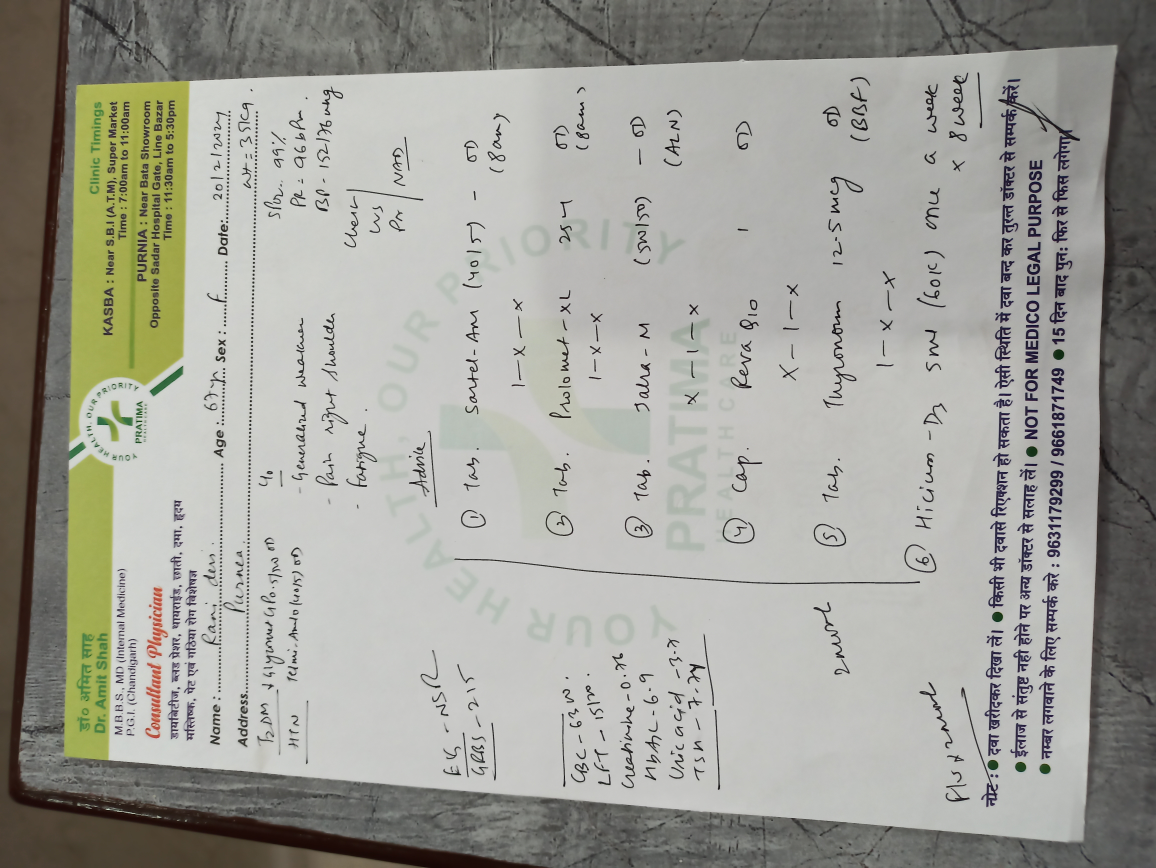 डॉ० अमित साह
Dr. Amit Shah
M.B.B.S., MD (Internal Medicine)
P.G.I. (Chandigarh)
Consultant Physician
डायबिटीज, ब्लड प्रेशर, थायराईड, छाती, दमा, हृदय
मस्तिष्क, पेट एवं गठिया रोग विशेषज्ञ
YOUR HEALTH, OUR PRIORITY
PRATIMA
HEALTHCARE
Clinic Timings
KASBA : Near S.B.I (A.T.M). Super Market
Time : 7:00am to 11:00am
PURNIA : Near Bata Showroom
Opposite Sadar Hospital Gate, Line Bazar
Time : 11:30am to 5:30pm
Name : Rani devi Age : 67yr Sex : F Date: 20/2/2024
Address Purnea wt = 35kg.
T2DM
HTN Telmi-Am 10 (40/5) OD
C/o
- Generalized weakness
- Pain right shoulder
- Fatigue.
SPO2. 99%
PR = 96 bPm
BP - 152/76 mmHg
Chest
CVS
PA
NAD
ECG - NSR
GRBS - 215
CBC - 63
LFT - 15/20.
Creatinine - 0.76
HbA1C - 6.9
Uric acid - 3.7
TSH - 7.74
Advice
① Tab. Sartel-AM (40/5) - OD
1-x-x (8am)
② Tab. Prolomet-XL 25 - OD
1-x-x (8am)
③ Tab. Jalra-M (50/50) - OD
x-1-x
④ Cap. Reva 1 OD
x-1-x
⑤ Tab. Thyronorm 12.5 mcg OD
1-x-x (BBF)
⑥ 5ml (60K) once a week
x 8 week
नोट : ● दवा खरीदकर दिखा लें। ● किसी भी दवासे रिएक्शन हो सकता है। ऐसी स्थिति में दवा बन्द कर तुरन्त डॉक्टर से सम्पर्क करें।
● ईलाज से संतुष्ट नही होने पर अन्य डॉक्टर से सलाह लें। ● NOT FOR MEDICO LEGAL PURPOSE
● नम्बर लगवाने के लिए सम्पर्क करे : 9631179299 / 9661871749 ● 15 दिन बाद पुन: फिर से फिस लगेगा